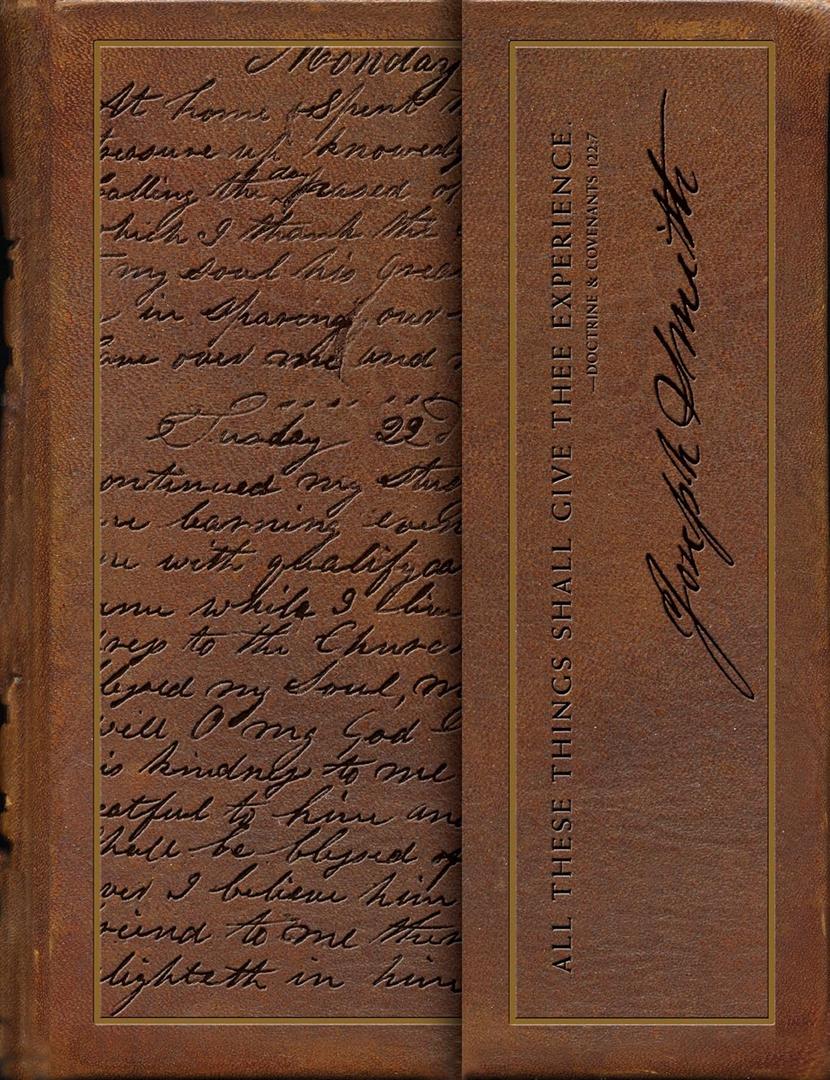 Monday
At home Spent
reasure up knowedg
calling the day passed of
which I thank the
my soul his grea
in sparing our
ave over me and
Tusday 22d
ontinued my Stud
re learning even
me with qualifyca
ime while I live
rep to the Church
blessed my Soul, m
will O my God
is kindness to me
eatful to him an
hall be blessed of
ver I believe him
riend to me ther
lighteth in him
ALL THESE THINGS SHALL GIVE THEE EXPERIENCE.
—DOCTRINE & COVENANTS 122:7
Joseph Smith